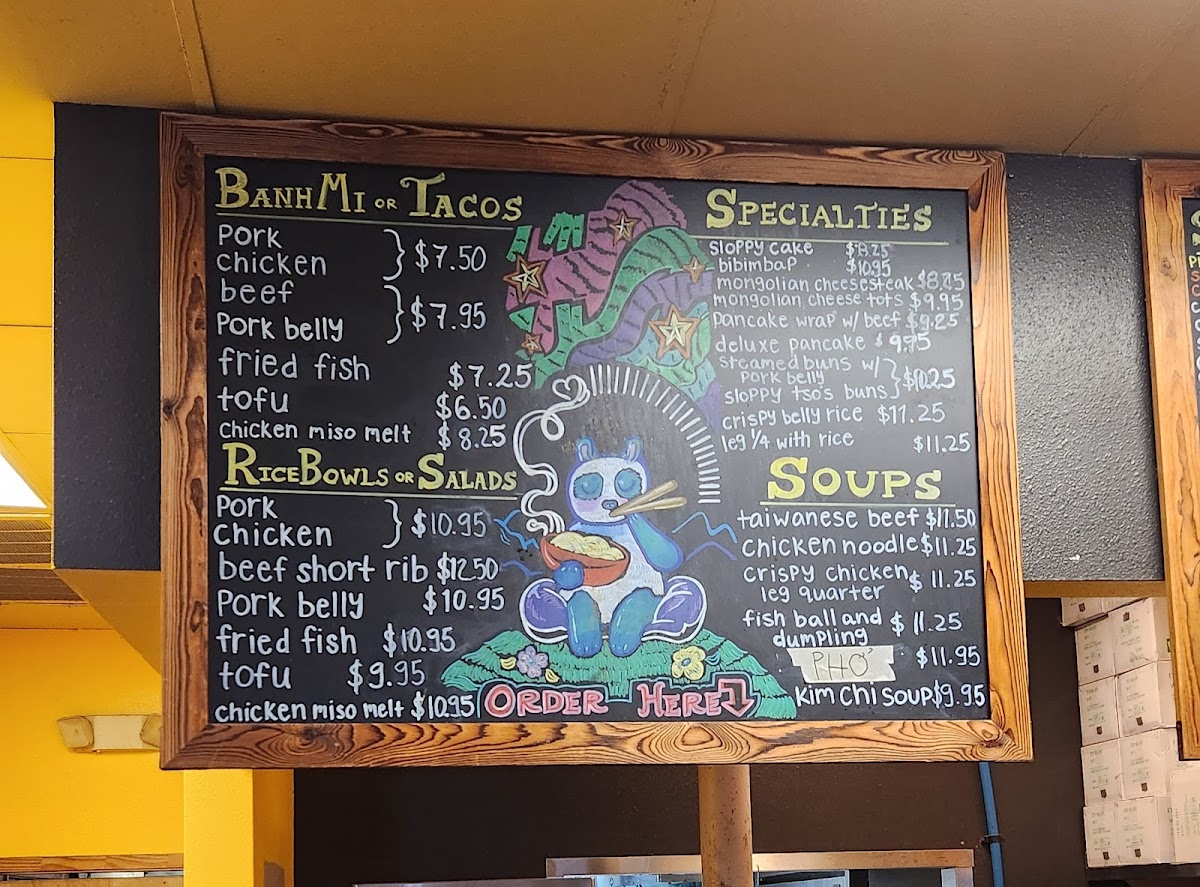 BANH MI OR TACOS
Pork
chicken } $7.50
beef
Pork belly } $7.95
fried fish $7.25
tofu $6.50
chicken miso melt $8.25
RICE BOWLS OR SALADS
Pork
chicken } $10.95
beef short rib $12.50
Pork belly $10.95
fried fish $10.95
tofu $9.95
chicken miso melt $10.95
ORDER HERE
SPECIALTIES
sloppy cake $8.25
bibimbap $10.95
mongolian cheesesteak
mongolian cheese tots $9.95
pancake wrap w/ beef $9.25
deluxe pancake $9.75
steamed buns w/
pork belly
sloppy tso's buns } $10.25
crispy belly rice $11.25
leg 1/4 with rice $11.25
SOUPS
taiwanese beef $11.50
chicken noodle $11.25
crispy chicken
leg quarter $11.25
fish ball and
dumpling $11.25
PHO' $11.95
kim chi soup $9.95